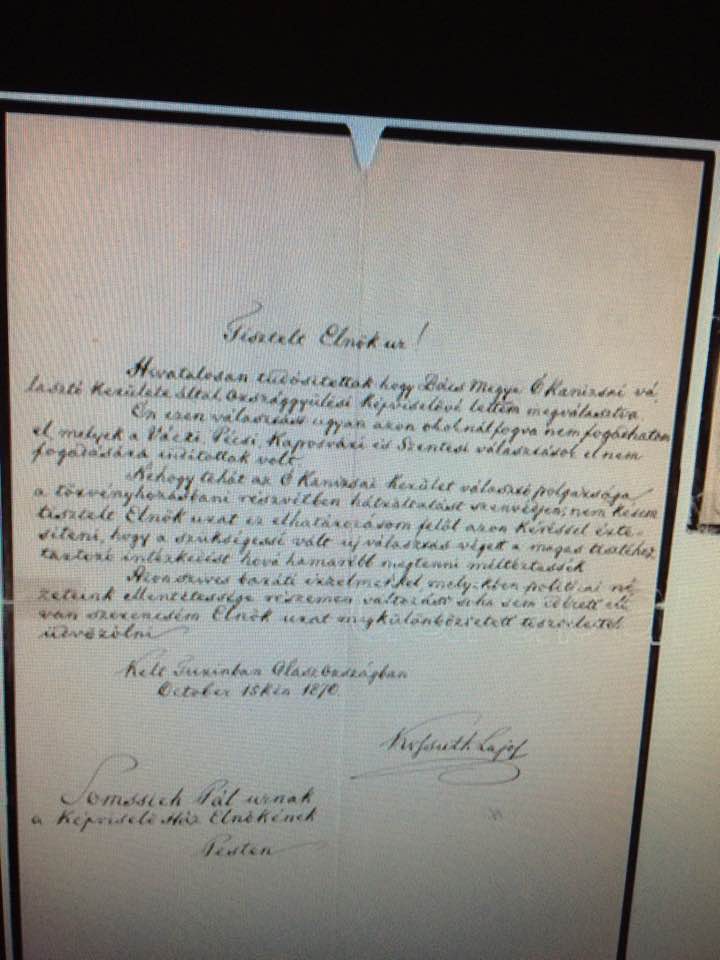 Tisztelt Elnök ur!
Hivatalosan tudósittattak hogy Bács Megye Ó Kanizsai vá-
lasztó kerülete által országgyülési képviselövé lettem megválasztva.
Én ezen választást ugyan azon okoknál fogva nem fogadhatom
el melyek a Váczi, Pécsi, Kaposvári és Szentesi választások el nem
fogadására inditottak volt.
Nehogy tehát az Ó Kanizsai kerület választó polgársága
a törvényhozásbani részvétben hátráltatást szenvedjen; nem késem
tisztelt Elnök urat ez elhatározásom felöl azon kéréssel érte-
siteni, hogy a szükségessé vált uj választás végett a magas tisztéhez
tartozó intézkedést hová hamarább megtenni méltóztassék
Azon szives baráti érzelmekkel melyekben politicai né-
zeteink ellentétessége részemen változást soha sem idézett elö
van szerencsém Elnök urat megkülönböztetett tisztelettel
üdvözölni
Kelt Turinban Olaszországban
October 15kén 1870.
Kossuth Lajos
Somssich Pál urnak
a Képviselö Ház Elnökének
Pesten